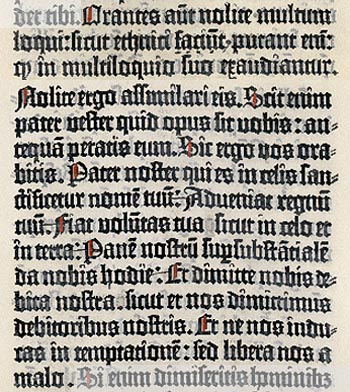 det tibi. Orantes aūt nolite multum
loqui: sicut ethnici faciūt. putant enī:
ꝙ in multiloquio suo exaudiantur.
Nolite ergo assimilari eis. Scit enim
pater vester quid opus sit vobis: an-
tequā petatis eum. Sic ergo vos ora-
bitis. Pater noster qui es in celis san-
ctificetur nomē tuū. Adveniat regnū
tuū. Fiat volūtas tua sicut in celo et
in terra. Panē nostrū supsubstātialē
da nobis hodie. Et dimitte nobis de-
bita nostra. sicut et nos dimittimus
debitoribus nostris. Et ne nos indu-
cas in temptationē: sed libera nos a
malo. Si enim dimiseritis hominibꝫ